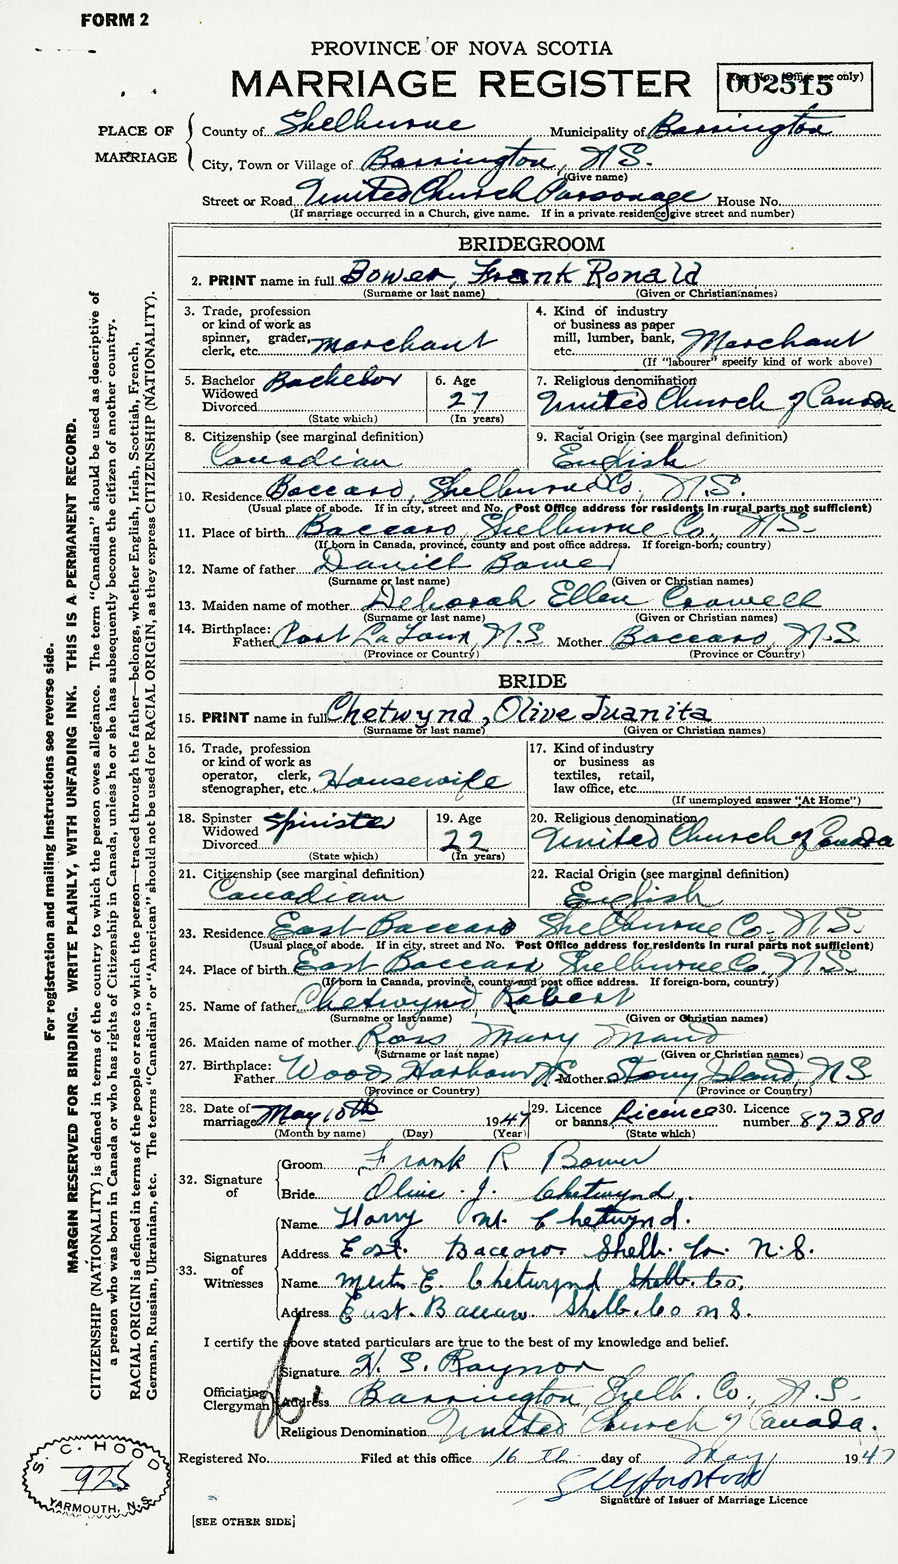 FORM 2
PROVINCE OF NOVA SCOTIA
MARRIAGE REGISTER
Reg. No. (Office use only)
002515
PLACE OF MARRIAGE
County of Shelburne Municipality of Barrington
City, Town or Village of Barrington, N.S.
(Give name)
Street or Road United Church Parsonage House No.
(If marriage occurred in a Church, give name. If in a private residence give street and number)
BRIDEGROOM
2. PRINT name in full Bower, Frank Ronald
(Surname or last name) (Given or Christian names)
3. Trade, profession or kind of work as spinner, grader, clerk, etc. Merchant
4. Kind of industry or business as paper mill, lumber, bank, etc. Merchant
(If "labourer" specify kind of work above)
5. Bachelor Widowed Divorced Bachelor
(State which)
6. Age 27
(In years)
7. Religious denomination United Church of Canada
8. Citizenship (see marginal definition) Canadian
9. Racial Origin (see marginal definition) English
10. Residence Baccaro, Shelburne Co., N.S.
(Usual place of abode. If in city, street and No. Post Office address for residents in rural parts not sufficient)
11. Place of birth Baccaro, Shelburne Co., N.S.
(If born in Canada, province, county and post office address. If foreign-born; country)
12. Name of father Daniel Bower
(Surname or last name) (Given or Christian names)
13. Maiden name of mother Deborah Ellen Crowell
(Surname or last name) (Given or Christian names)
14. Birthplace: Father Port La Tour, N.S Mother Baccaro, N.S
(Province or Country) (Province or Country)
BRIDE
15. PRINT name in full Chetwynd, Olive Juanita
(Surname or last name) (Given or Christian names)
16. Trade, profession or kind of work as operator, clerk, stenographer, etc. Housewife
17. Kind of industry or business as textiles, retail, law office, etc.
(If unemployed answer "At Home")
18. Spinster Widowed Divorced Spinister
(State which)
19. Age 22
(In years)
20. Religious denomination United Church of Canada
21. Citizenship (see marginal definition) Canadian
22. Racial Origin (see marginal definition) English
23. Residence East Baccaro Shelburne Co., N.S.
(Usual place of abode. If in city, street and No. Post Office address for residents in rural parts not sufficient)
24. Place of birth East Baccaro Shelburne Co., N.S.
(If born in Canada, province, county and post office address. If foreign-born, country)
25. Name of father Chetwynd Robert
(Surname or last name) (Given or Christian names)
26. Maiden name of mother Ross, Mary Maud
(Surname or last name) (Given or Christian names)
27. Birthplace: Father Woods Harbour N.S. Mother Stony Island, N.S
(Province or Country) (Province or Country)
28. Date of marriage May 10th 1947
(Month by name) (Day) (Year)
29. Licence or banns Licence
(State which)
30. Licence number 87380
32. Signature of
Groom Frank R Bower
Bride Olive J. Chetwynd.
33. Signatures of Witnesses
Name Harry M. Chetwynd.
Address East. Baccaro. Shelb. Co. N.S.
Name Chetwynd Shelb. Co,
Address East. Baccaro Shelb. Co N.S.
I certify the above stated particulars are true to the best of my knowledge and belief.
Officiating Clergyman
Signature H. S. Raynor
Address Barrington, Shelb. Co., N.S.
Religious Denomination United Church of Canada.
Registered No. Filed at this office 16 th day of May 1947
Signature of Issuer of Marriage Licence
[SEE OTHER SIDE]
For registration and mailing instructions see reverse side.
MARGIN RESERVED FOR BINDING. WRITE PLAINLY, WITH UNFADING INK. THIS IS A PERMANENT RECORD.
CITIZENSHIP (NATIONALITY) is defined in terms of the country to which the person owes allegiance. The term "Canadian" should be used as descriptive of
a person who was born in Canada or who has rights of Citizenship in Canada, unless he or she has subsequently become the citizen of another country.
RACIAL ORIGIN is defined in terms of the people or race to which the person—traced through the father—belongs, whether English, Irish, Scottish, French,
German, Russian, Ukrainian, etc. The terms "Canadian" or "American" should not be used for RACIAL ORIGIN, as they express CITIZENSHIP (NATIONALITY).
S. C. HOOD
925
YARMOUTH, N.S.